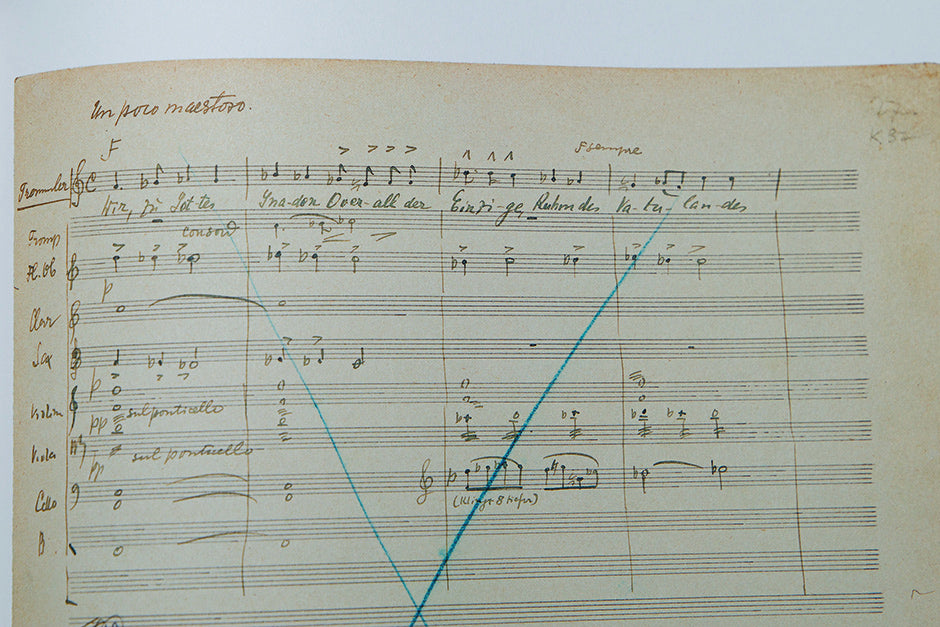 Un poco maestoso.
F
F sempre
Trommler
Wir, zu Got-tes Gna-den Over-all der Einzi-ge, des Va-ter-lan-des
Tromp
consord
Fl. Ob
p
Clar
Sax
p
Violin
pp sul ponticello
Viola
pp sul ponticello
Cello
p
(klingt 8 tiefer)
B